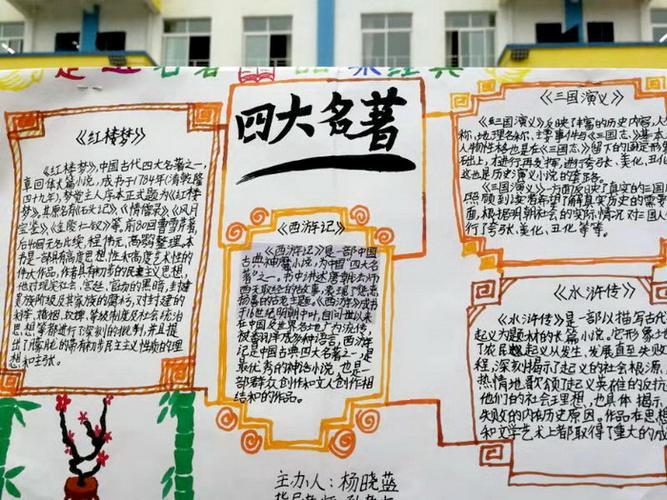 走进名著 品味经典
四大名著
《红楼梦》
《红楼梦》,中国古代四大名著之一,
章回体长篇小说,成书于1784年(清乾隆
四十九年),梦觉主人序本正式题为《红楼
梦》,其原名有《石头记》、《情僧录》、《风月
宝鉴》、《金陵十二钗》等,前80回曹雪芹著,
后40回无名氏续,程伟元、高鹗整理。本
书是一部具有高度思想性和高度艺术性的
伟大作品,作者具有初步的民主主义思想,
他对现实社会、宫廷、官场的黑暗,封建
贵族阶级及其家族的腐朽,对封建的
科举、婚姻、奴婢、等级制度及社会统治
思想等都进行了深刻的批判,并且提
出了朦胧的带有初步民主主义性质的理
想和主张。
《西游记》
《西游记》是一部中国
古典神魔小说,为中国"四大名
著"之一。书中讲述唐朝法师
西天取经的故事,表现了惩恶
扬善的古老主题。《西游记》成书
于16世纪明朝中叶,自问世以来
在中国及世界各地广为流传,
被翻译成多种语言。西游
记是中国古典四大名著之一,是
最优秀的神话小说,也是一
部群众创作和文人创作相
结和的作品。
《三国演义》
《三国演义》反映了丰富的历史内容,人
称,地理名称、主要事件与《三国志》基本
人物性格也是在《三国志》留下的固定形
础上,才进行再发挥,进行夸张、美化、丑
这也是历史演义小说的套路。
《三国演义》一方面反映了真实的三国
照顾到读者希望了解真实历史的需要
面,根据明朝社会的实际情况对三国人
行了夸张、美化、丑化等等。
《水浒传》
《水浒传》是一部以描写古代
起义为题材的长篇小说。它形象地
了农民起义从发生、发展直至失败
程,深刻揭示了起义的社会根源,
热情地歌颂了起义英雄的反抗
他们的社会理想,也具体揭示
失败的内在历史原因。作品在思想
和文学艺术上都取得了重大的成
主办人:杨晓蓝
指导老师